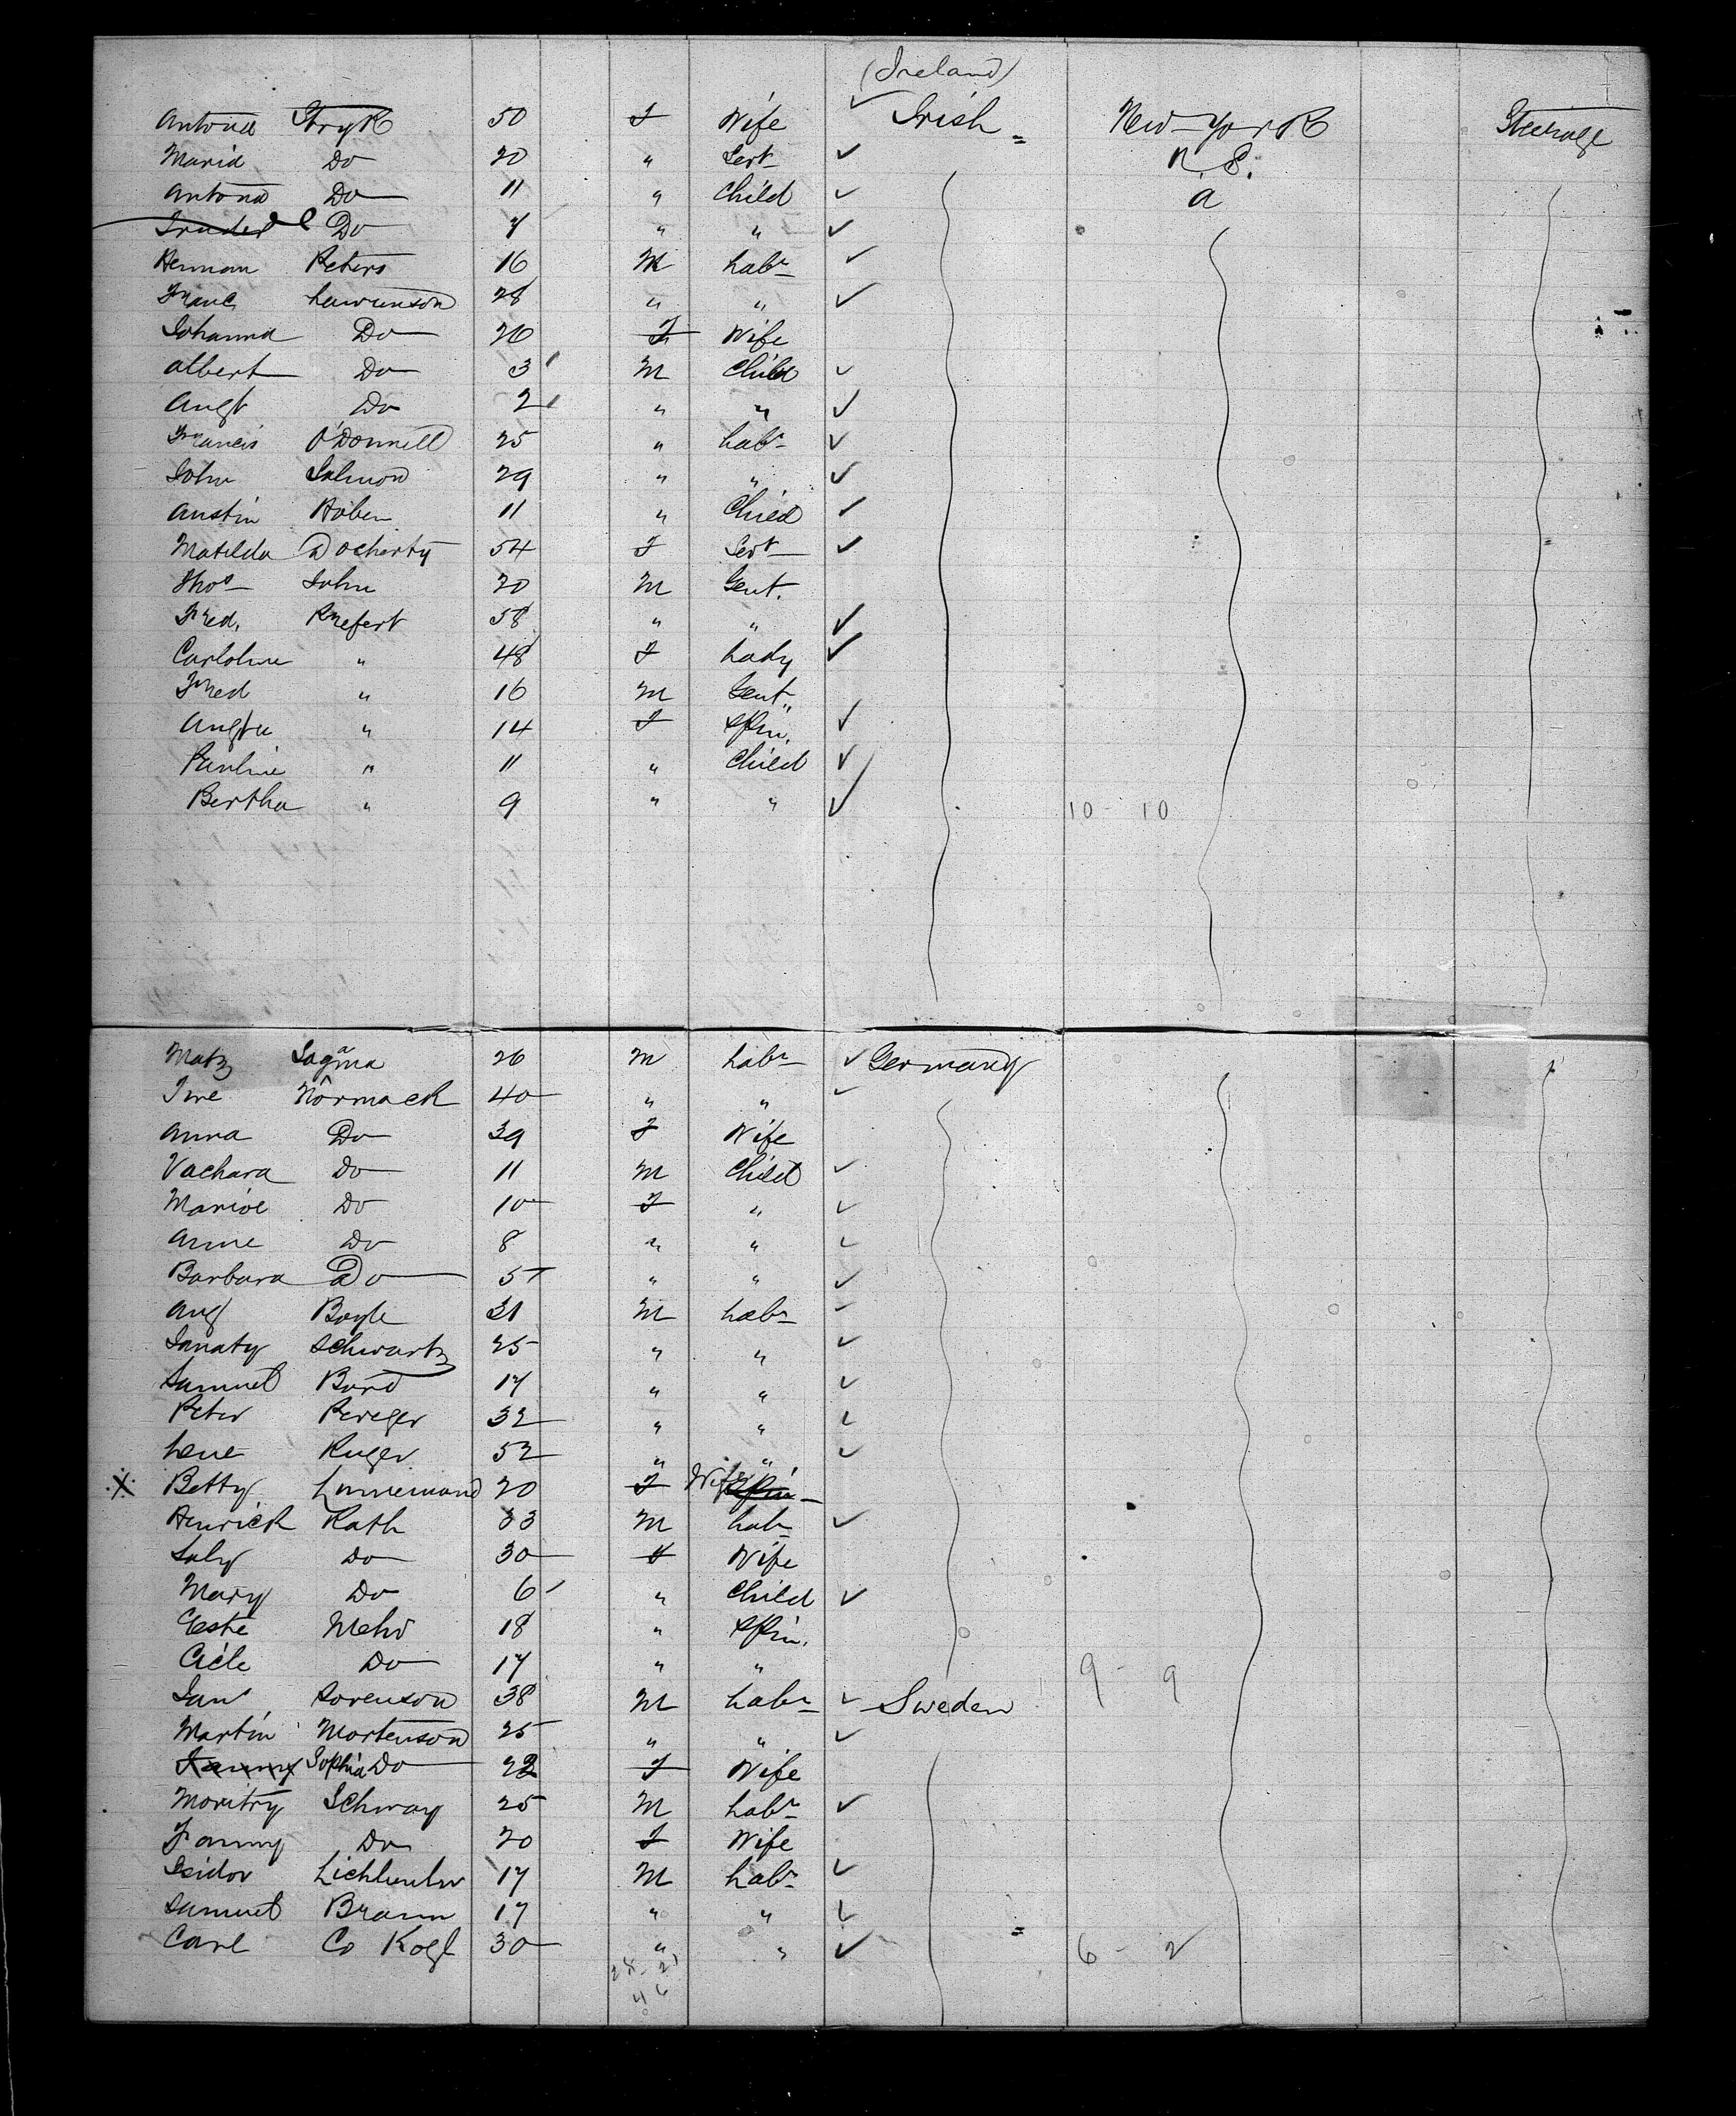 (Ireland)
Antona Stryk 50 F Wife Irish New-York Steerage
Maria Do 20 " Servt N.S.
Antona Do 11 " Child a
Do 7 " "
Herman Peters 16 M Labr
Franc Lawrenson 28 " "
Johanna Do 26 F Wife
Albert Do 3 M Child
Augt Do 2 " "
Francis O'Donnell 25 " Labr
John Salmon 29 " "
Austin Hoben 11 " Child
Matilda Docherty 54 F Servt
Thos John 20 M Gent.
Fred. Knefert 58 " "
Carloline " 48 F Lady
Fred " 16 M Gent
Augta " 14 F Spin.
Pauline " 11 " Child
Bertha " 9 " " 10 - 10
Matz Sagma 26 M Labr Germany
Iwe Normack 40 " "
Anna Do 39 F Wife
Vachara Do 11 M Child
Marioe Do 10 F "
Anne Do 8 " "
Barbara Do 5 " "
Aug Boyle 31 M Labr
Ianaty Schwartz 25 " "
Samuel Bord 17 " "
Peter Pereger 32 " "
Lene Kuger 52 " "
X Betty Linnemand 20 F Wife Spin
Henrick Kath 33 M Labr
Saly Do 30 F Wife
Mary Do 6 " Child
Este Mehr 18 " Spin.
Cicle Do 17 " " 9 - 9
Jans Sorenson 38 M Labr Sweden
Martin Mortenson 25 " "
Fanny Sophia Do 22 F Wife
Moritry Schway 25 M Labr
Fanny Do 20 F Wife
Isidor 17 M Labr
Samuel Braun 17 " "
Carl Co Kogl 30 " " 6 - 2